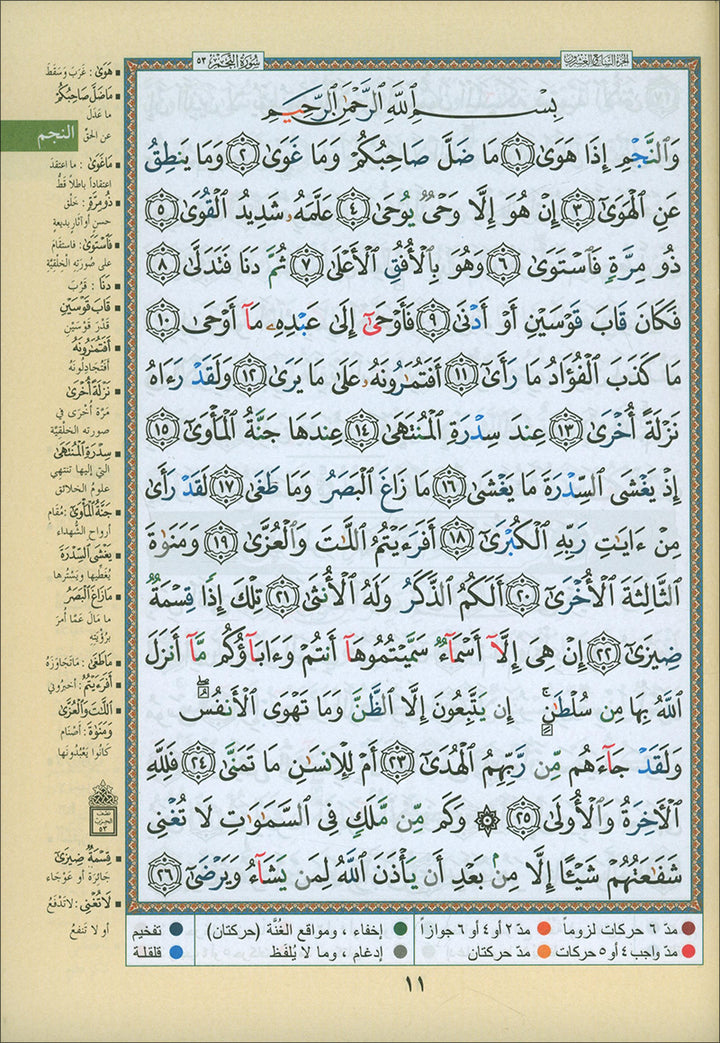 سُورَةُ النَّجْمِ ٥٣
الجزء السابع والعشرون
بِسْمِ ٱللَّهِ ٱلرَّحْمَٰنِ ٱلرَّحِيمِ
وَٱلنَّجْمِ إِذَا هَوَىٰ ١ مَا ضَلَّ صَاحِبُكُمْ وَمَا غَوَىٰ ٢ وَمَا يَنطِقُ
عَنِ ٱلْهَوَىٰٓ ٣ إِنْ هُوَ إِلَّا وَحْىٌ يُوحَىٰ ٤ عَلَّمَهُۥ شَدِيدُ ٱلْقُوَىٰ ٥
ذُو مِرَّةٍ فَٱسْتَوَىٰ ٦ وَهُوَ بِٱلْأُفُقِ ٱلْأَعْلَىٰ ٧ ثُمَّ دَنَا فَتَدَلَّىٰ ٨
فَكَانَ قَابَ قَوْسَيْنِ أَوْ أَدْنَىٰ ٩ فَأَوْحَىٰٓ إِلَىٰ عَبْدِهِۦ مَآ أَوْحَىٰ ١٠
مَا كَذَبَ ٱلْفُؤَادُ مَا رَأَىٰٓ ١١ أَفَتُمَٰرُونَهُۥ عَلَىٰ مَا يَرَىٰ ١٢ وَلَقَدْ رَءَاهُ
نَزْلَةً أُخْرَىٰ ١٣ عِندَ سِدْرَةِ ٱلْمُنتَهَىٰ ١٤ عِندَهَا جَنَّةُ ٱلْمَأْوَىٰٓ ١٥
إِذْ يَغْشَى ٱلسِّدْرَةَ مَا يَغْشَىٰ ١٦ مَا زَاغَ ٱلْبَصَرُ وَمَا طَغَىٰ ١٧ لَقَدْ رَأَىٰ
مِنْ ءَايَٰتِ رَبِّهِ ٱلْكُبْرَىٰٓ ١٨ أَفَرَءَيْتُمُ ٱللَّٰتَ وَٱلْعُزَّىٰ ١٩ وَمَنَوٰةَ
ٱلثَّالِثَةَ ٱلْأُخْرَىٰٓ ٢٠ أَلَكُمُ ٱلذَّكَرُ وَلَهُ ٱلْأُنثَىٰ ٢١ تِلْكَ إِذًا قِسْمَةٌ
ضِيزَىٰٓ ٢٢ إِنْ هِىَ إِلَّآ أَسْمَآءٌ سَمَّيْتُمُوهَآ أَنتُمْ وَءَابَآؤُكُم مَّآ أَنزَلَ
ٱللَّهُ بِهَا مِن سُلْطَٰنٍ ۚ إِن يَتَّبِعُونَ إِلَّا ٱلظَّنَّ وَمَا تَهْوَى ٱلْأَنفُسُ ۖ
وَلَقَدْ جَآءَهُم مِّن رَّبِّهِمُ ٱلْهُدَىٰٓ ٢٣ أَمْ لِلْإِنسَٰنِ مَا تَمَنَّىٰ ٢٤ فَلِلَّهِ
ٱلْءَاخِرَةُ وَٱلْأُولَىٰ ٢٥ ۞ وَكَم مِّن مَّلَكٍ فِى ٱلسَّمَٰوَٰتِ لَا تُغْنِى
شَفَٰعَتُهُمْ شَيْـًٔا إِلَّا مِنۢ بَعْدِ أَن يَأْذَنَ ٱللَّهُ لِمَن يَشَآءُ وَيَرْضَىٰٓ ٢٦
النجم
هَوَىٰ : غَرَبَ وَسَقَطَ
مَا ضَلَّ صَاحِبُكُمْ
ما عَدَلَ
عن الحقّ
مَا غَوَىٰ : ما اعتقدَ
اعتقاداً باطلاً قطُّ
ذُو مِرَّةٍ : خَلْق
حسن أو آثار بديعةٍ
فَٱسْتَوَىٰ : فاستقامَ
على صُورته الخَلْقيَّة
دَنَا : قَرُبَ
قَابَ قَوْسَيْنِ
قَدْرَ قَوْسَيْنِ
أَفَتُمَٰرُونَهُ
أفتُجَادِلُونَهُ
نَزْلَةً أُخْرَىٰ
مَرَّة أُخرى في
صورته الخلقيّة
سِدْرَةِ ٱلْمُنتَهَىٰ
التي إليها تنتهي
علومُ الخلائق
جَنَّةُ ٱلْمَأْوَىٰ : مُقام
أرواح الشُّهداء
يَغْشَى ٱلسِّدْرَةَ
يُغَطِّيها ويَسْتُرها
مَا زَاغَ ٱلْبَصَرُ
ما مَالَ عَمَّا أُمِرَ
برُؤْيَتِهِ
مَا طَغَىٰ : مَا تَجَاوَزَهُ
أَفَرَءَيْتُمُ : أخبروني
ٱللَّٰتَ وَٱلْعُزَّىٰ
وَمَنَوٰةَ : أصْنام
كَانُوا يَعْبُدُونَها
نصف
الحزب
٥٣
قِسْمَةٌ ضِيزَىٰٓ
جَائِرَة أو عَوْجاء
لَا تُغْنِى : لا تَدْفَعُ
أو لا تَنفعُ
مدّ ٦ حركات لزوماً مدّ ٢ أو ٤ أو ٦ جوازاً إخفاء ، ومواقع الغُنَّة (حركتان) تفخيم
مدّ واجب ٤ أو ٥ حركات مدّ حركتان إدغام ، وما لا يُلفَظ قلقلة
١١